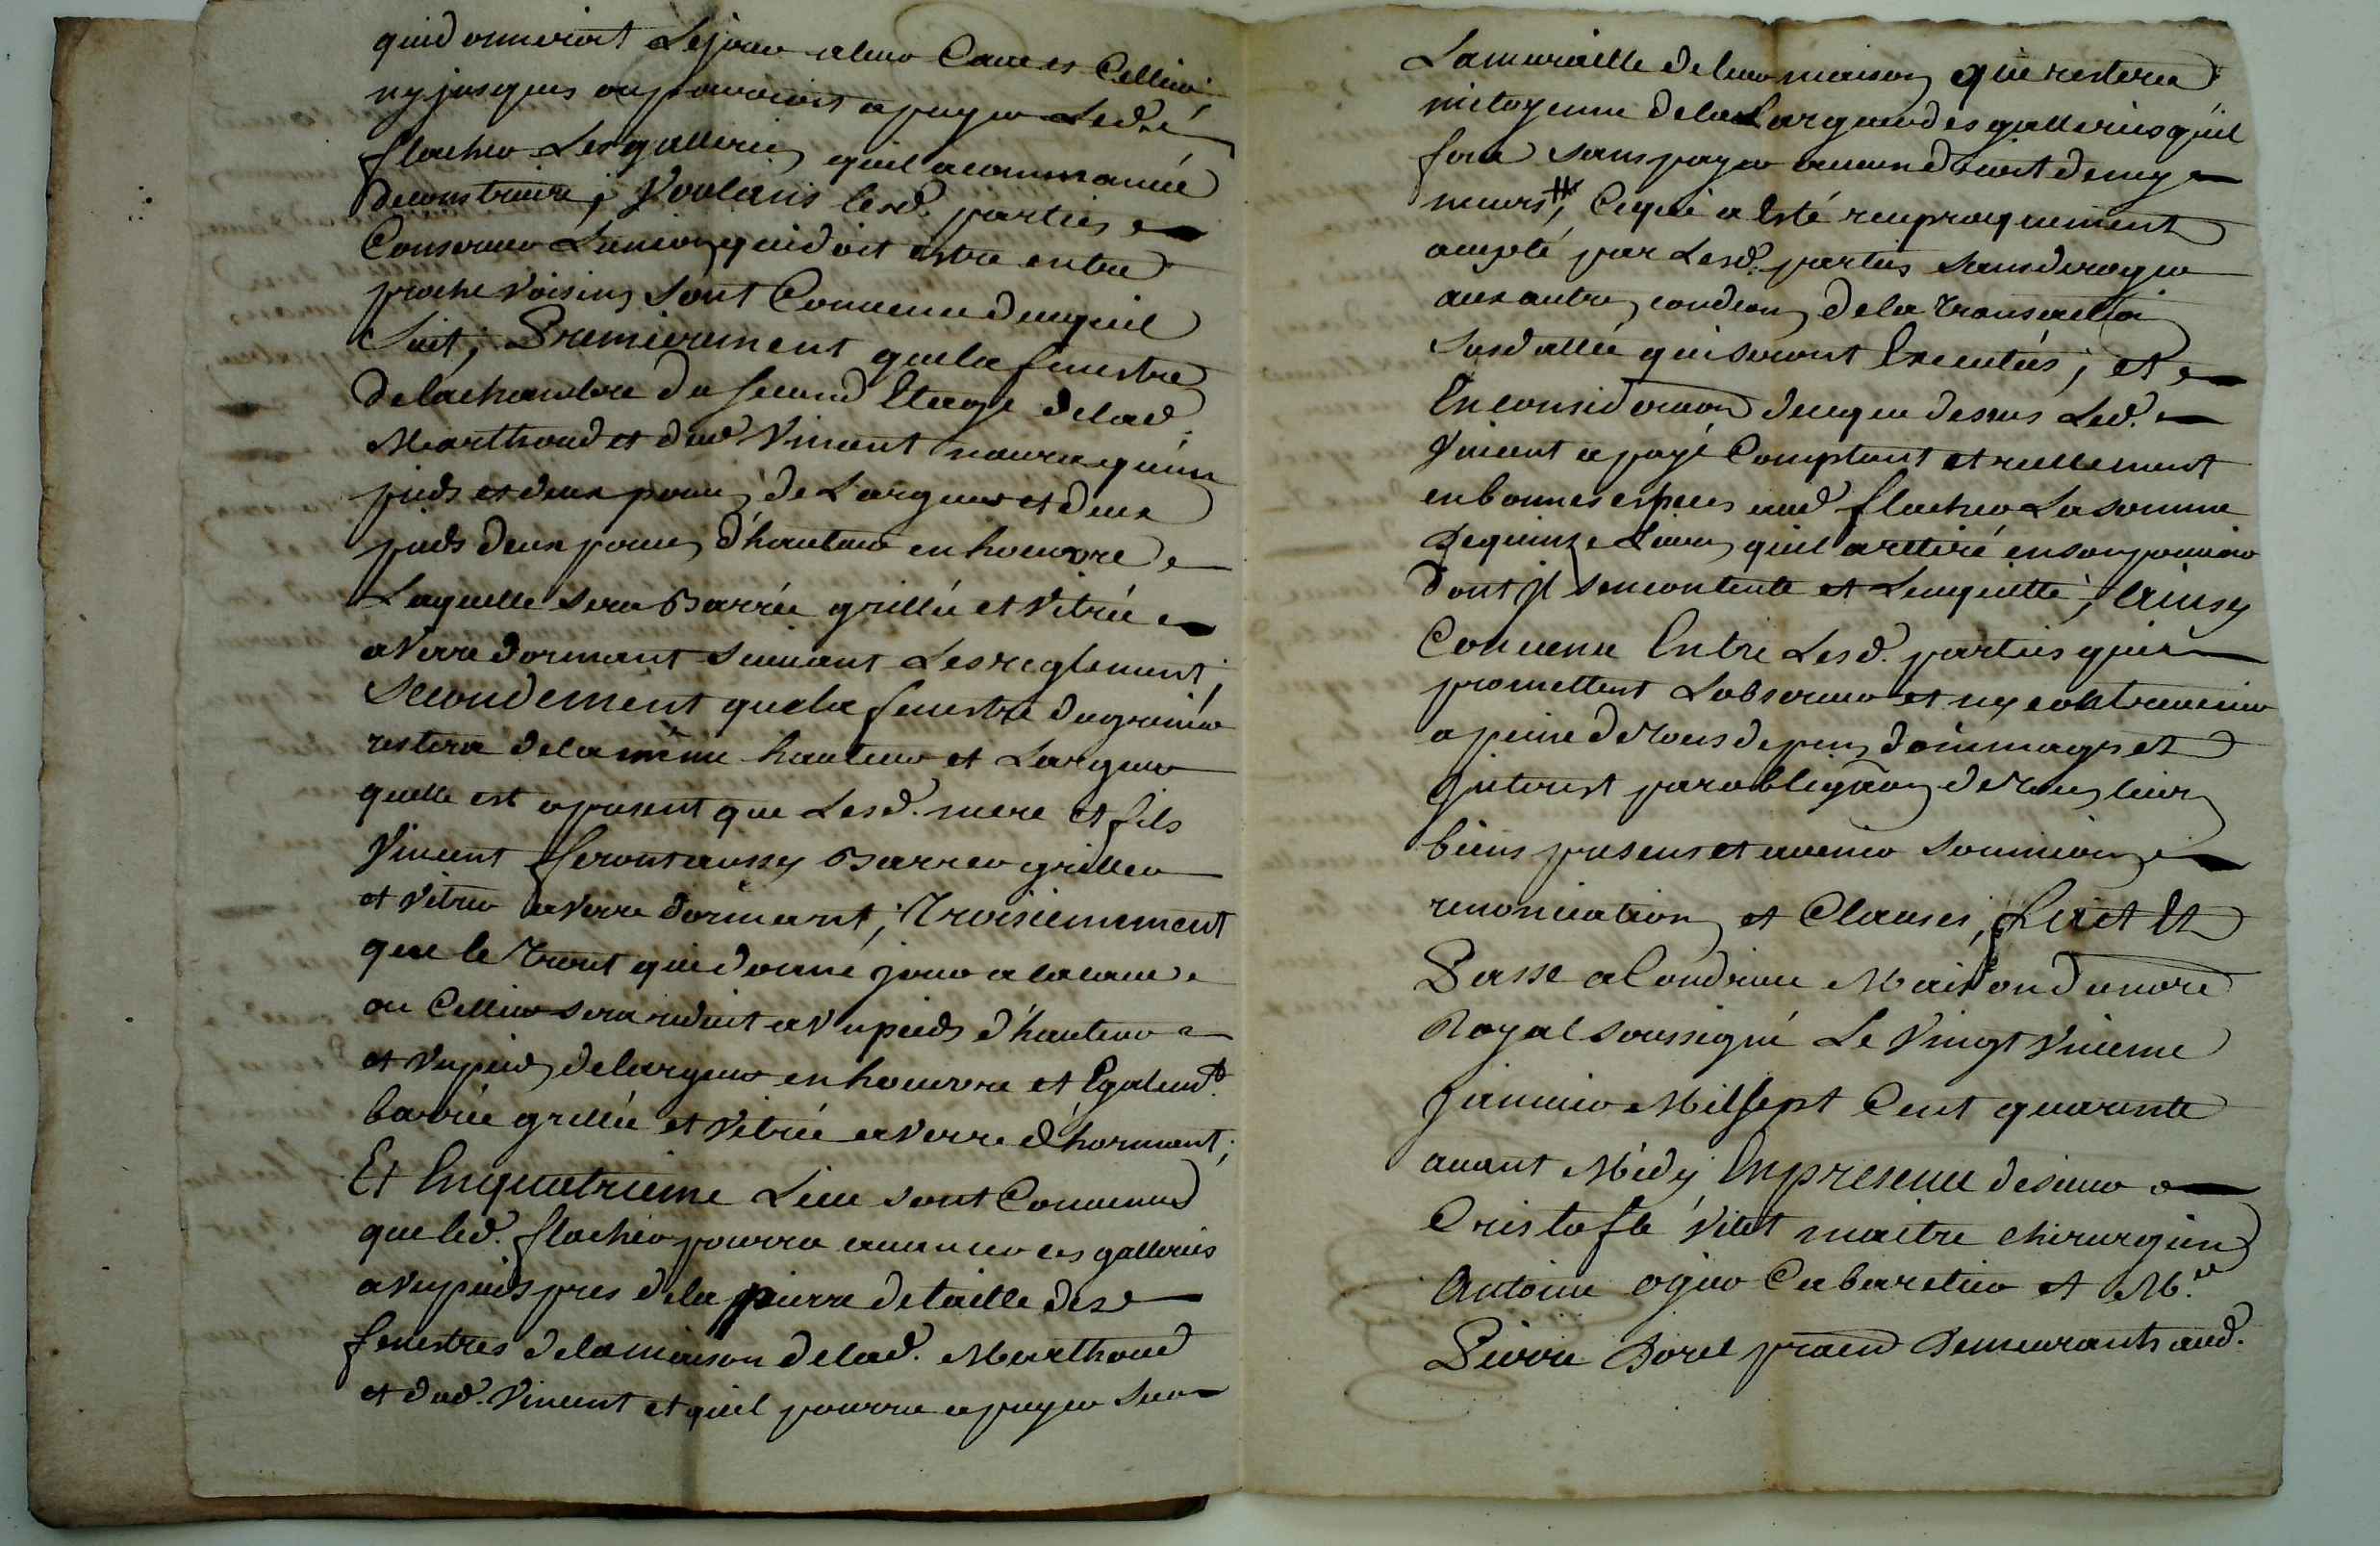 qui donneroit Le jour a leur Caue et Cellier
ny jusques ou pouvoient apuyer Led.
flacher Les galleries qu'il a commancé
de construire, Voulans lesd. parties
Conseruer L'union qui doit estre entre
proche Voisins sont Conuenu de ce qui
suit, Premierement que la fenestre
de la chambre du second Etage de lad.
Marthoud et dud. Vincent n'aura qu'un
pieds et deux pouces de Largeur et deux
pieds deux pouces d'hauteur en hœuvre
Laquelle sera Barrée grillée et Vitrée
a Verre dormant suiuant Les reglement,
Secondement que la fenestre du grenier
restera de la même hauteur et Largeur
quelle est a present que Lesd. mere et fils
Vincent feront aussy Barrer griller
et Vitrer a Verre dormant, Troisiemement
que le Trout qui donne jour a la caue
ou Cellier sera reduit a Vn pieds d'hauteur
et Vn pied de largeur en hœuvre et Egalemt.
barrée grillée et Vitrée a Verre d'hormant,
Et En quatrieme Lieu sont Conuenus
que led. flacher pourra auancer ces galleries
a Vn pieds pres de la pierre de taille des
fenestres de la maison de lad. Marthoud
et dud. Vincent et qu'il pourra apuyer sur
La muraille de leur maison que restera
mitoyenne de la Largeur des galleries qu'il
fera sans payer aucun droit de my
murs #, Ce qui a Esté reciproquement
accepté par Lesd. parties sans deroger
aux autres condions de la Transaction
susd allée qui seront Executés; et
En consideraon de ce que dessus Led.
Vincent a payé Comptant et reellement
en bonnes especes aud. flacher La somme
de quinze Liures qu'il a retiré en son pouuoir
dont Il s'en contente et L'en quitte, Ainsy
Conuenu Entre Lesd. parties qui
promettent L'obseruer et n'y contreuenir
a peine de tous depens dommages et
Interest par obligaon de Tous leurs
biens presens et auenir soumissions
renonciations et Clauses, fait Et
Passe a Condrieu Maison du nore
Royal soussigné Le Vingt Vnieme
Januier Mil sept Cent quarante
auant Midy En presence de sieur
Cristofle Vitet maitre chirurgien
Antoine ogier Cabaretier et Mre
Pierre Borel praen Demeurants aud.